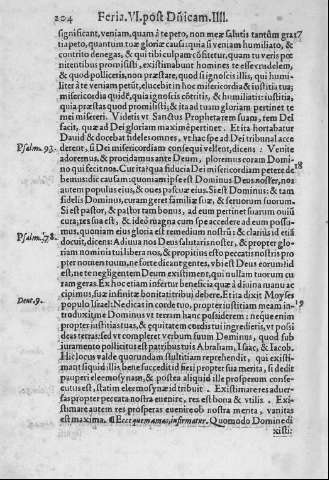 204 Feria. VI. post Dñicam. IIII.
significant, veniam, quam à te peto, non meæ salutis tantùm gra- 17
tia peto, quantum tuæ gloriæ causa: quia si veniam humiliato, &
contrito denegas, & qui tibi culpam cõfitetur, quam tu veris pœ
nitentibus promisisti, existimabunt homines te esse crudelem,
& quod polliceris, non præstare, quod si ignoscis illis, qui humi-
liter à te veniam petũt, elucebit in hoc misericordia & iustitia tua;
misericordia quidẽ, quia ignoscis cõtritis, & humiliatis: iustitia,
quia præstas quod promisisti; & ita ad tuam gloriam pertinet te
mei misereri. Videtis vt Sanctus Propheta rem suam, rem Dei
facit, quæ ad Dei gloriam maximè pertinet? Et ita hortabatur
Dauid & docebat fideles omnes, vt hac spe ad Dei tribunal acce
Psalm. 93. derent, si Dei misericordiam consequi vellent, dicens: Venite
adoremus, & procidamus ante Deum, ploremus coram Domi- 18
no qui fecit nos. Cur ita? qua fiducia Dei misericordiam petere de
bemus: dic causam. quoniam ipse est Dominus Deus noster, nos
autem populus eius, & oues pascuæ eius. Si est Dominus: & tam
fidelis Dominus, curam geret familiæ suæ, & seruorum suorum.
Si est pastor, & pastor tam bonus, ad eum pertinet suarum ouiũ
cura, res sua est, & ideò magna cum spe accedere ad eum possu-
mus, quoniam eius gloria est remedium nostrũ: & clariùs id etiã
Psalm. 78. docuit, dicens: Adiuua nos Deus salutaris noster, & propter glo-
riam nominis tui libera nos, & propitius esto peccatis nostris pro
pter nomen tuum, ne forte dicant gentes, vbi est Deus eorum? id
est, ne te negligentem Deum existiment, qui nullam tuorum cu
ram geras. Ex hoc etiam infertur beneficia quæ à diuina manu ac
cipimus, suæ infinitæ bonitati tribui debere. Et ita dixit Moyses
Deut. 9. populo Israel: Ne dicas in corde tuo, propter iustitiam meam in- 19
troduxit me Dominus vt terram hanc possiderem: neque enim
propter iustitias tuas, & equitatem cordis tui ingredieris, vt possi
deas terras: sed vt compleret verbum suum Dominus, quod sub
iuramento pollicitus est patribus tuis Abraham, Isaac, & Iacob.
Hic locus valde quorundam stultitiam reprehendit, qui existi-
mant siquid illis bene succedit id fieri propter sua merita, si dedit
pauperi eleemosynam, & postea aliquid ille prosperum conse-
cutus est, statim eleemosynæ id tribuit. Existimare res aduer-
sas propter peccata nostra euenire, res est bona & vtilis. Exi-
stimare autem res prosperas euenire ob nostra merita, vanitas
est maxima. ¶ Ecce quem amas, infirmatur. Quomodo Domine di
xisti: